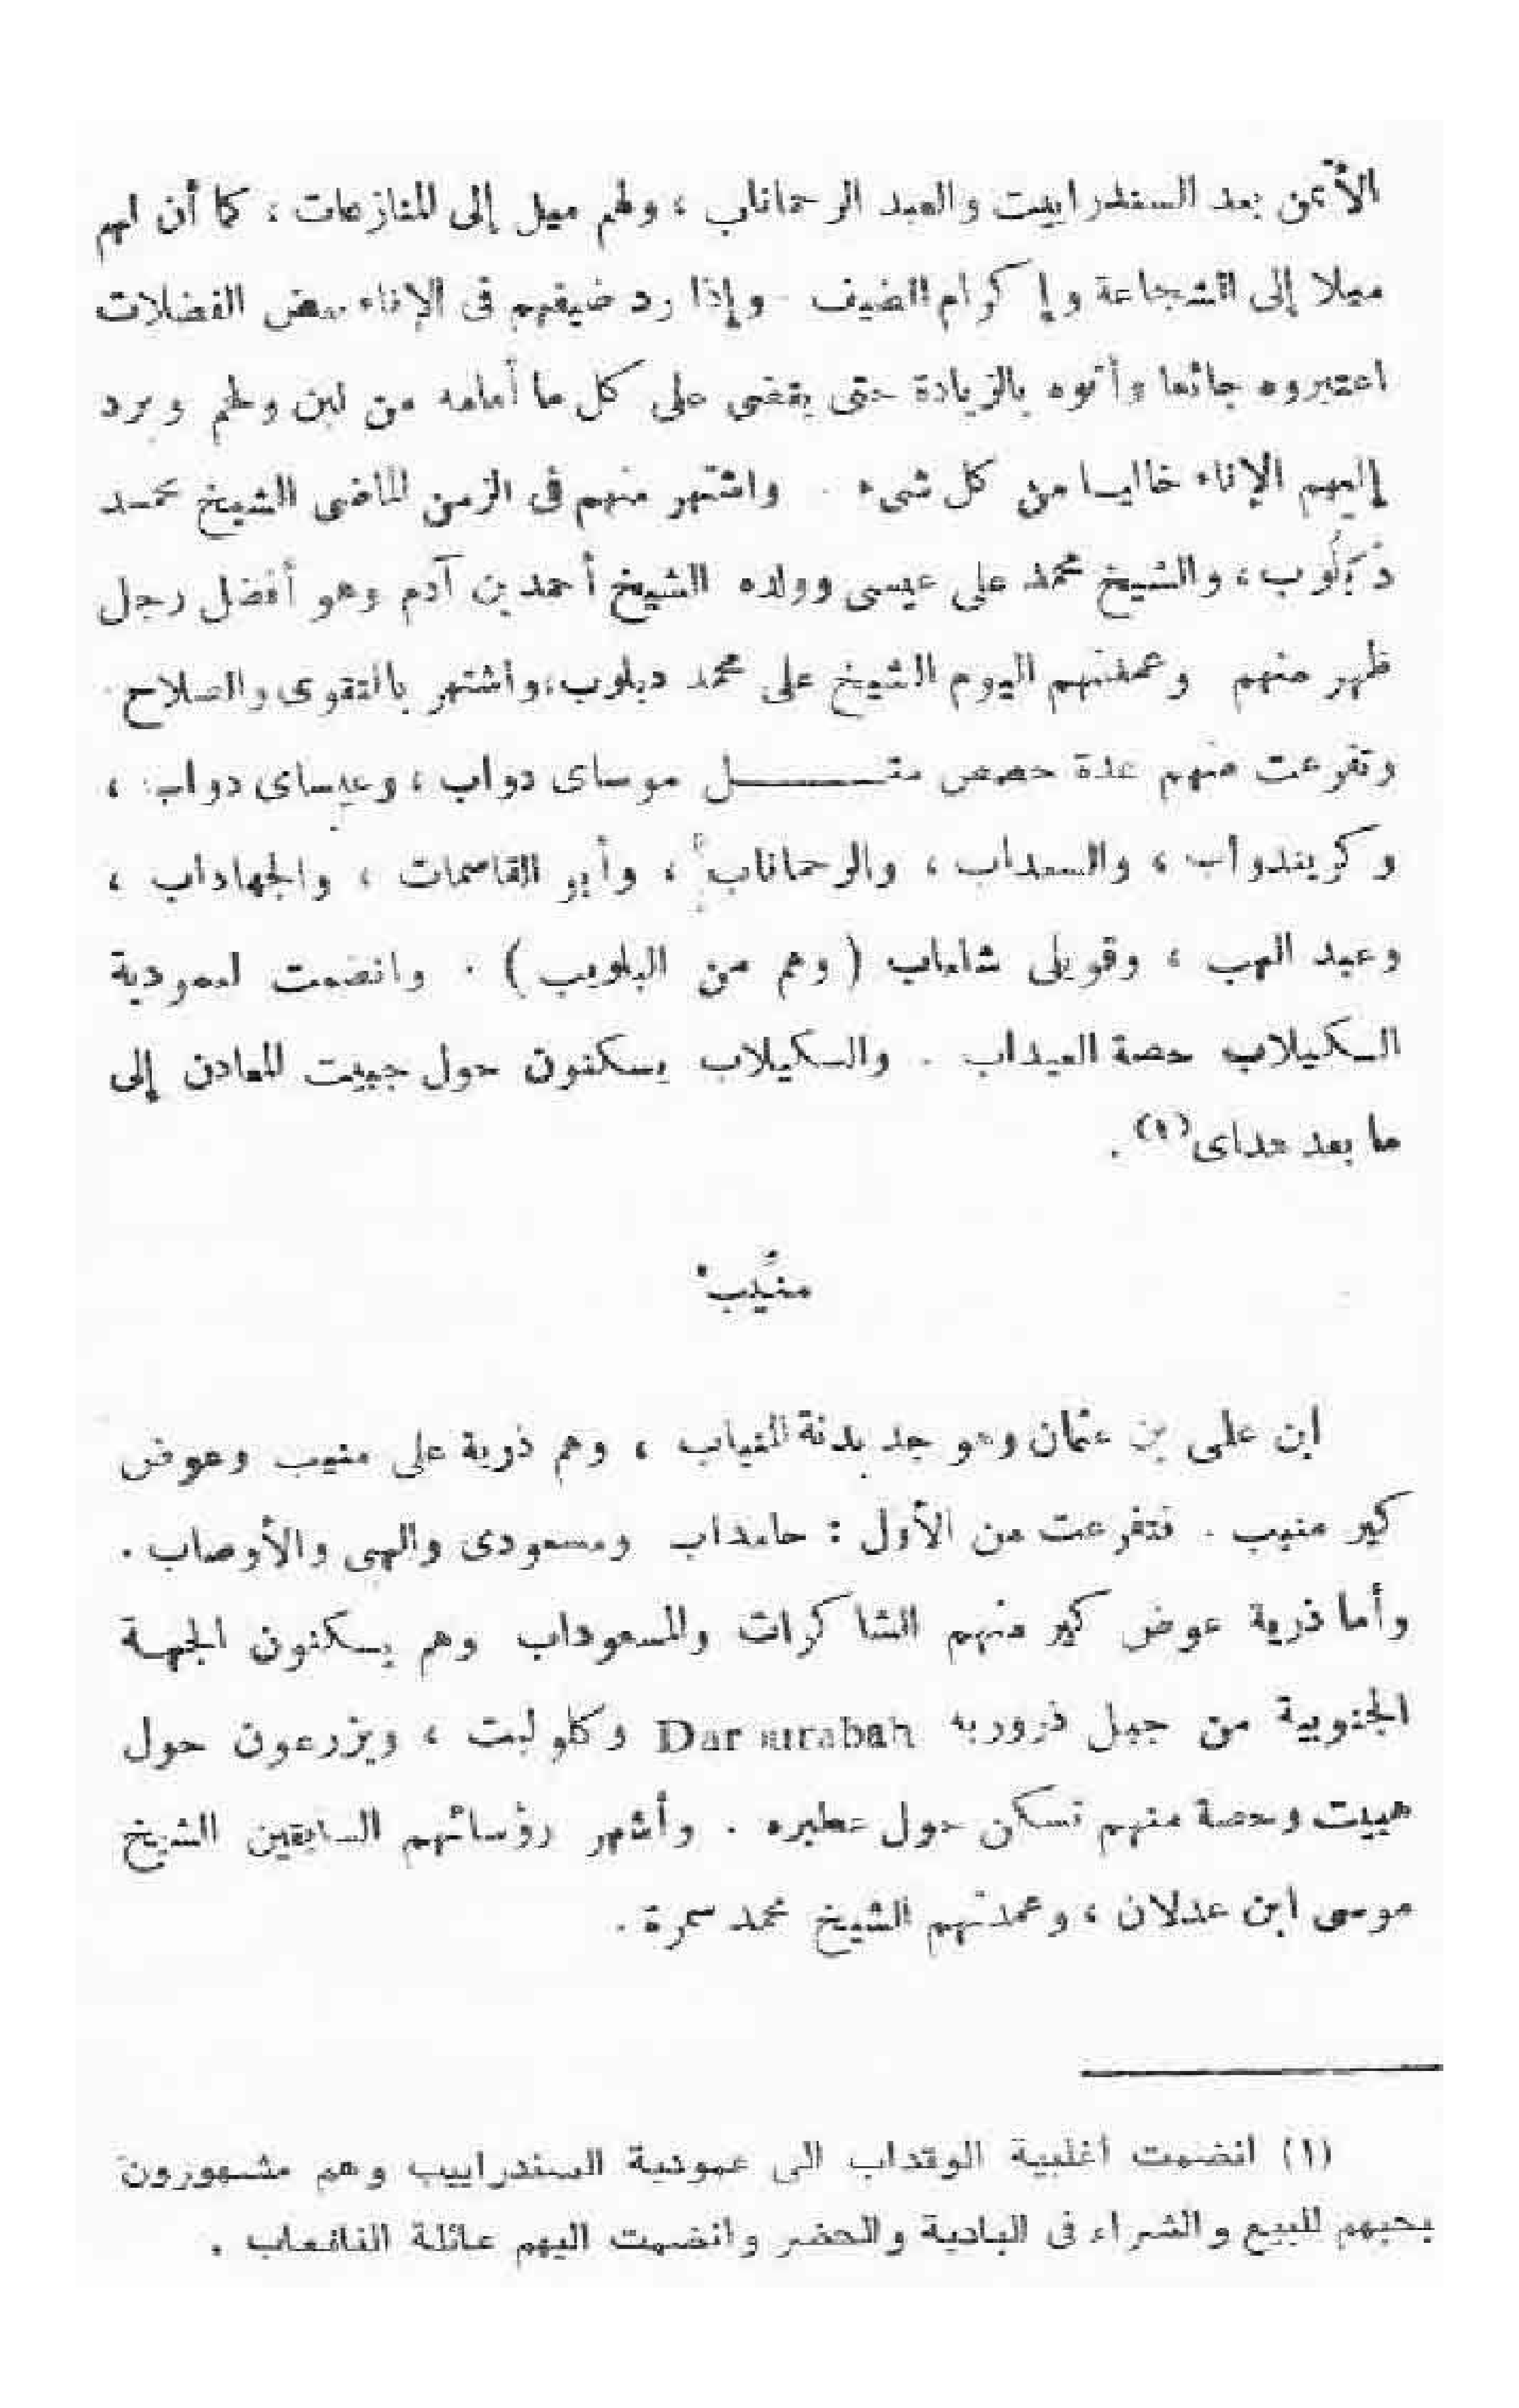 الأثمن بعد السندراييت والعبد الرحماناب ، ولهم ميل إلى المنازعات ، كما أن لهم
ميلا إلى الشجاعة وإكرام الضيف - وإذا رد ضيفهم فى الإناء بعض الفضلات
اعتبروه جائعا وأتوه بالزيادة حتى يقضى على كل ما أمامه من لبن ولحم ويرد
إليهم الإناء خاليا من كل شىء . واشتهر منهم فى الزمن الماضى الشيخ محمد
دَبَلُوب ، والشيخ محمد على عيسى وولده الشيخ أحمد بن آدم وهو أفضل رجل
ظهر منهم وعمدتهم اليوم الشيخ على محمد دبلوب ، واشتهر بالتقوى والصلاح .
وتفرعت منهم عدة حصص مثـــــل موساى دواب ، وعيساى دواب ،
وكريندواب ، والسعداب ، والرحماناب ، وأبو القاسمات ، والجهاداب ،
وعبد الهب ، وقويلى شاماب ( وهم من البلويب ) . وانضمت لعمودية
السكيلاب حصة العيداب . والسكيلاب يسكنون حول جبيت المعادن إلى
ما بعد هداى (١) .
منيب
ابن على بن عثمان وهو جد بدنة المنياب ، وهم ذرية على منيب وعوض
كير منيب . فتفرعت من الأول : حامداب ومسعودى والهى والأوصاب .
وأما ذرية عوض كير منهم الشاكرات والمسعوداب وهم يسكنون الجهة
الجنوبية من جبل دروربه Darurabah وكلوليت ، ويزرعون حول
هييت وحصة منهم تسكن حول عطبره . وأشهر رؤسائهم السابقين الشيخ
موسى ابن عدلان ، وعمدتهم الشيخ محمد سمرة .
(١) انضمت أغلبية الوقداب الى عمودية السندراييب وهم مشهورون
بحبهم للبيع والشراء فى البادية والحضر وانضمت اليهم عائلة النافعاب .